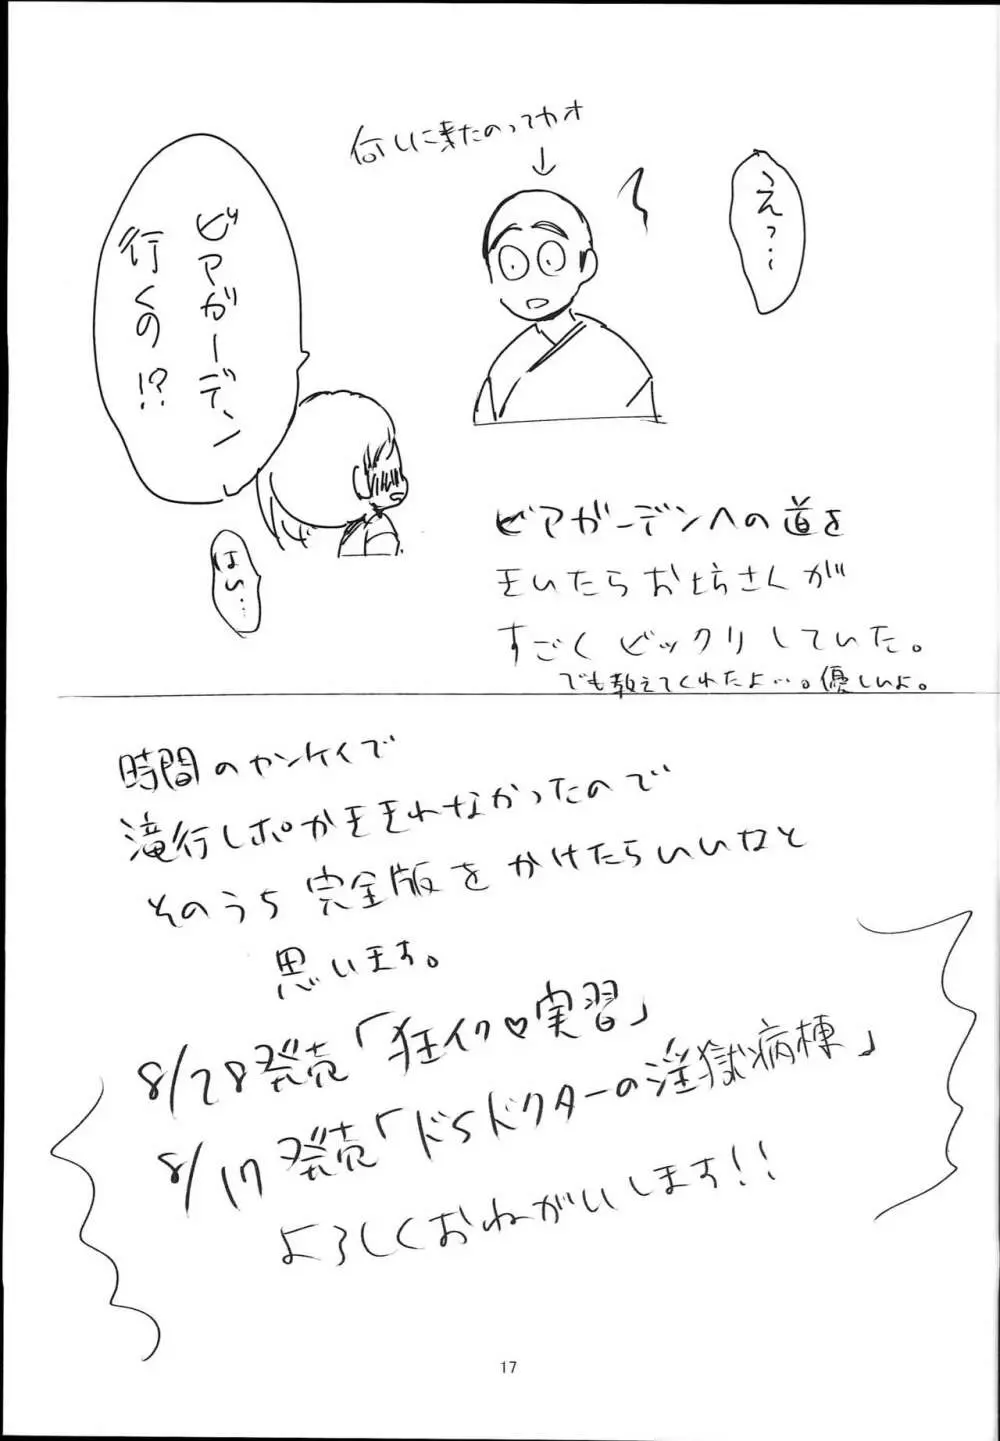 何しに来たのってカオ
↓
えっ…
ビアガーデン
行くの!?
はい…
ビアガーデンへの道を
きいたらお坊さんが
すごくビックリしていた。
でも教えてくれたよ…。優しいよ。
時間のカンケイで
滝行レポかききれなかったので
そのうち完全版をかけたらいいなと
思います。
8/28発売「狂イク♡実習」
8/17発売「ドSドクターの淫獄病棟」
よろしくおねがいします!!
17